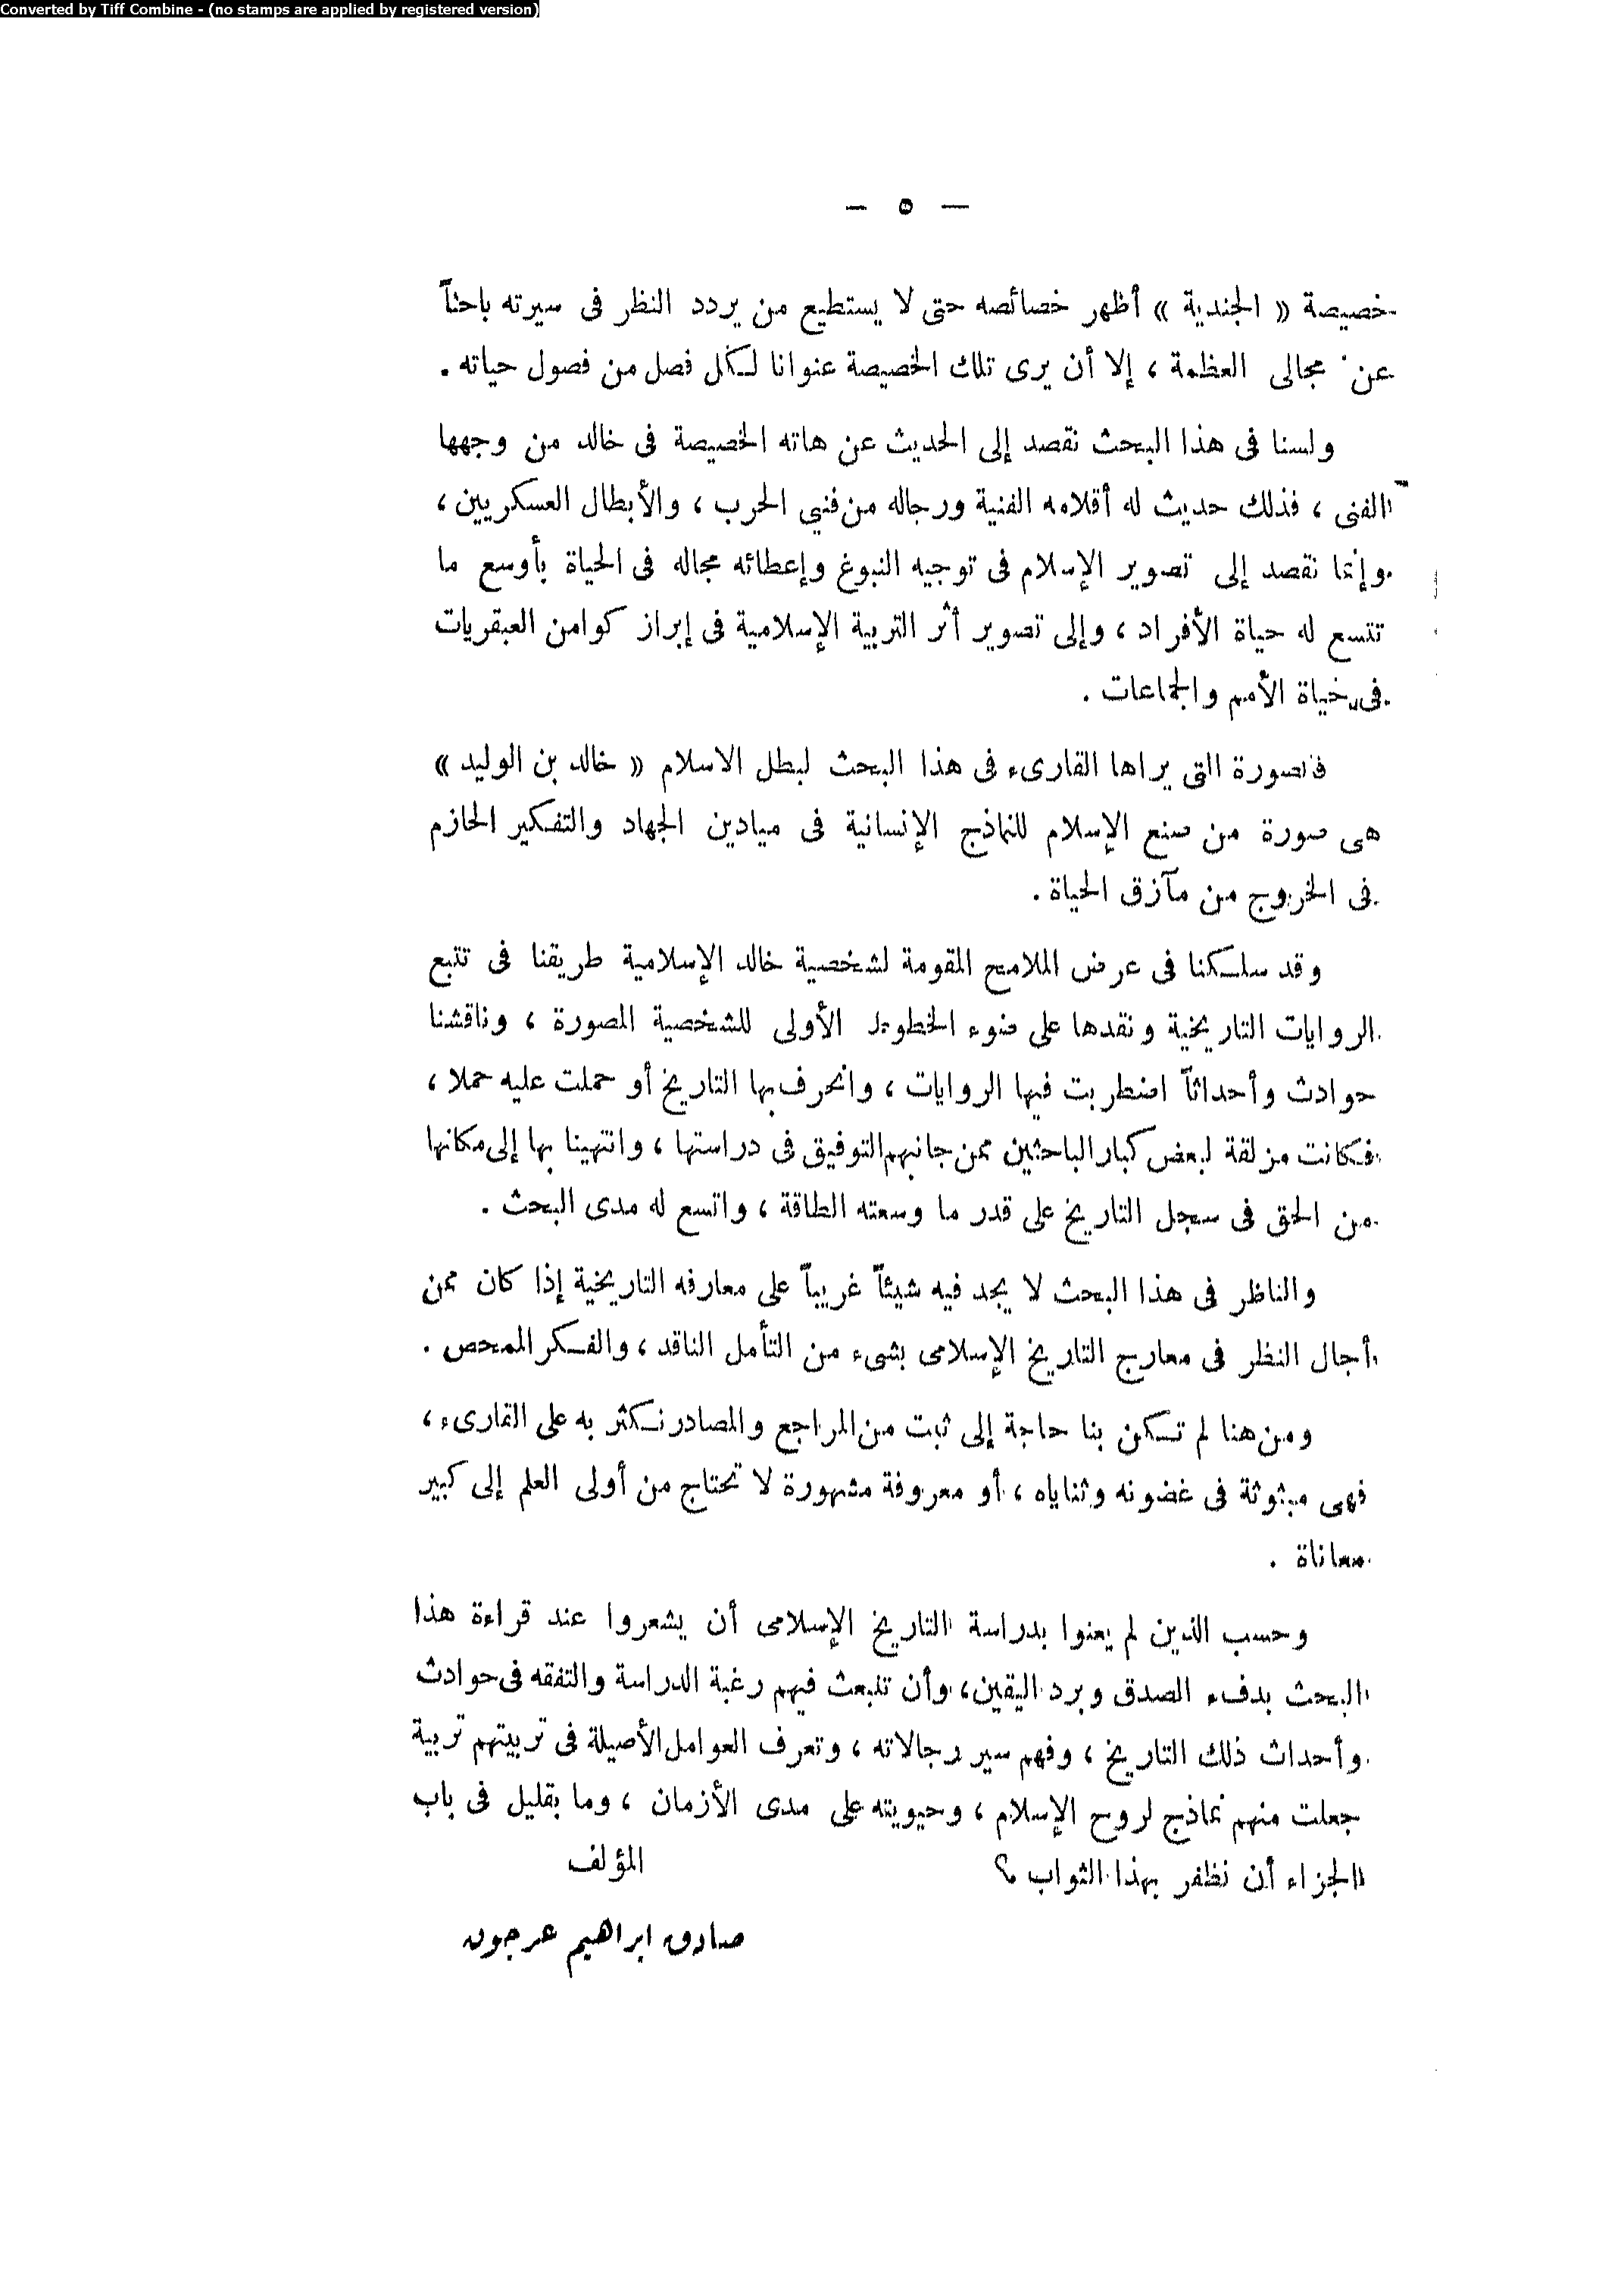 Converted by Tiff Combine - (no stamps are applied by registered version)
— ٥ —
خصيصة « الجندية » أظهر خصائصه حتى لا يستطيع من يردد النظر فى سيرته باحثاً
عن مجالى العظمة ، إلا أن يرى تلك الخصيصة عنوانا لكل فصل من فصول حياته .
ولسنا فى هذا البحث نقصد إلى الحديث عن هاته الخصيصة فى خالد من وجهها
الفنى ، فذلك حديث له أقلامه الفنية ورجاله من فنيي الحرب ، والأبطال العسكريين ،
وإنما نقصد إلى تصوير الإسلام فى توجيه النبوغ وإعطائه مجاله فى الحياة بأوسع ما
تتسع له حياة الأفراد ، وإلى تصوير أثر التربية الإسلامية فى إبراز كوامن العبقريات
فى حياة الأمم والجماعات .
فالصورة التى يراها القارىء فى هذا البحث لبطل الاسلام « خالد بن الوليد »
هى صورة من صنع الإسلام للنماذج الإنسانية فى ميادين الجهاد والتفكير الحازم
فى الخروج من مآزق الحياة .
وقد سلكنا فى عرض الملامح المقومة لشخصية خالد الإسلامية طريقنا فى تتبع
الروايات التاريخية ونقدها على ضوء الخطوط الأولى للشخصية المصورة ، وناقشنا
حوادث وأحداثاً اضطربت فيها الروايات ، وانحرف بها التاريخ أو حملت عليه حملا ،
فكانت مزلقة لبعض كبار الباحثين ممن جانبهم التوفيق فى دراستها ، وانتهينا بها إلى مكانها
من الحق فى سجل التاريخ على قدر ما وسعته الطاقة ، واتسع له مدى البحث .
والناظر فى هذا البحث لا يجد فيه شيئاً غريباً على معارفه التاريخية إذا كان ممن
أجال النظر فى معارج التاريخ الإسلامى بشىء من التأمل الناقد ، والفكر الممحص .
ومن هنا لم تكن بنا حاجة إلى ثبت من المراجع والمصادر نكثر به على القارىء ،
فهى مبثوثة فى غضونه وثناياه ، أو معروفة مشهورة لا تحتاج من أولى العلم إلى كبير
معاناة .
وحسب الذين لم يعنوا بدراسة التاريخ الإسلامى أن يشعروا عند قراءة هذا
البحث بدفء الصدق وبرد اليقين ، وأن تنبعث فيهم رغبة الدراسة والتفقه فى حوادث
وأحداث ذلك التاريخ ، وفهم سير رجالاته ، وتعرف العوامل الأصيلة فى تربيتهم تربية
جعلت منهم نماذج لروح الإسلام ، وحيويته على مدى الأزمان ، وما بقليل فى باب
الجزاء أن نظفر بهذا الثواب ؟
المؤلف
صادق ابراهيم عرجون